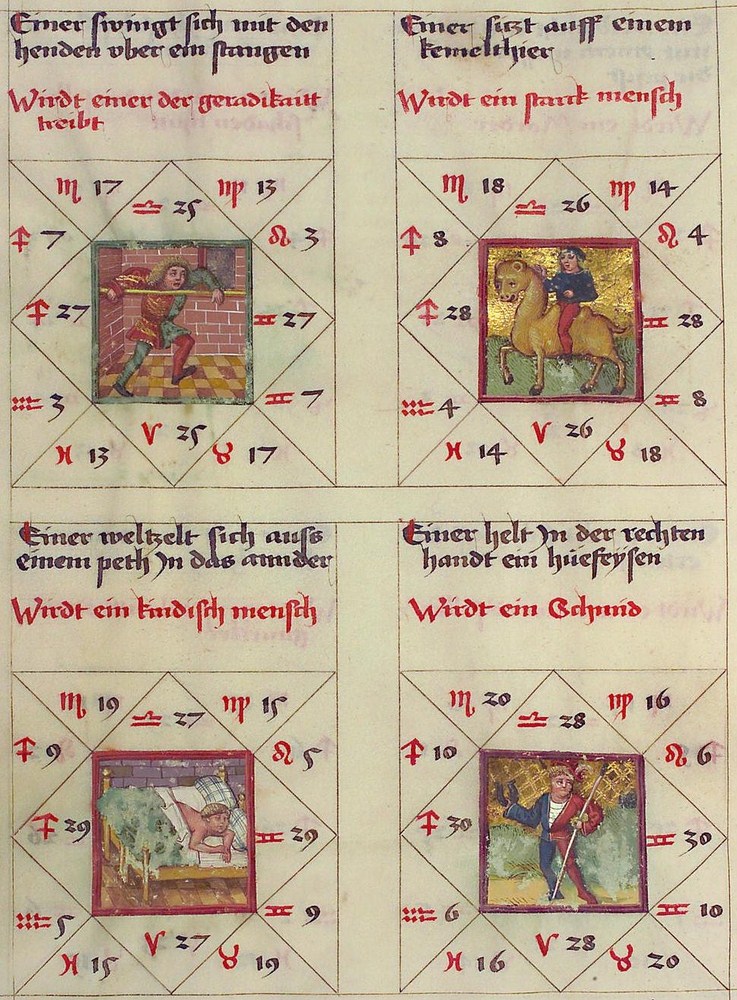 Einer swingt sich mit den
henden vber ein stangen
Wirdt einer der geradikaitt
treibt
♏ 17 ♎ 25 ♍ 13
♐ 7 ♌ 3
♐ 27 ♊ 27
♒ 3 ♊ 7
♓ 13 ♈ 25 ♉ 17
Einer sitzt auff einem
kemelthier
Wirdt ein starck mensch
♏ 18 ♎ 26 ♍ 14
♐ 8 ♌ 4
♐ 28 ♊ 28
♒ 4 ♊ 8
♓ 14 ♈ 26 ♉ 18
Einer weltzelt sich auss
einem peth Jn das annder
Wirdt ein kindisch mensch
♏ 19 ♎ 27 ♍ 15
♐ 9 ♌ 5
♐ 29 ♊ 29
♒ 5 ♊ 9
♓ 15 ♈ 27 ♉ 19
Einer helt Jn der rechten
handt ein hüefeysen
Wirdt ein Schmid
♏ 20 ♎ 28 ♍ 16
♐ 10 ♌ 6
♐ 30 ♊ 30
♒ 6 ♊ 10
♓ 16 ♈ 28 ♉ 20